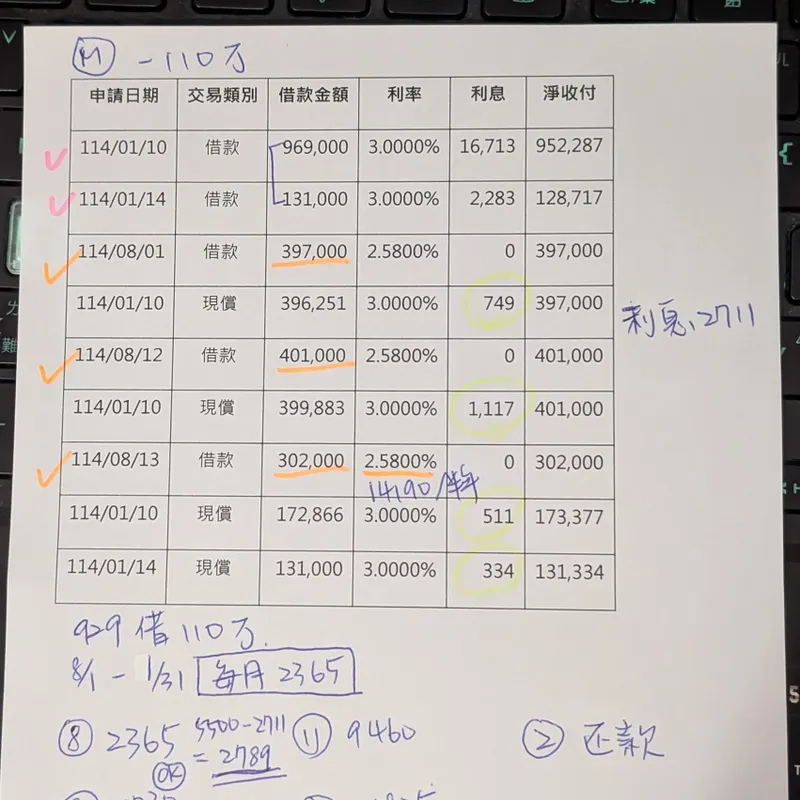 M －110万
申請日期 交易類別 借款金額 利率 利息 淨收付
114/01/10 借款 969,000 3.0000% 16,713 952,287
114/01/14 借款 131,000 3.0000% 2,283 128,717
114/08/01 借款 397,000 2.5800% 0 397,000
114/01/10 現償 396,251 3.0000% 749 397,000
利息、2711
114/08/12 借款 401,000 2.5800% 0 401,000
114/01/10 現償 399,883 3.0000% 1,117 401,000
114/08/13 借款 302,000 2.5800% 0 302,000
14190/半年
114/01/10 現償 172,866 3.0000% 511 173,377
114/01/14 現償 131,000 3.0000% 334 131,334
929 借 110万.
8/1 - 1/31 每月 2365
⑧ 2365 5500-2711 ⑪ 9460 ② 还款
= 2789
OK